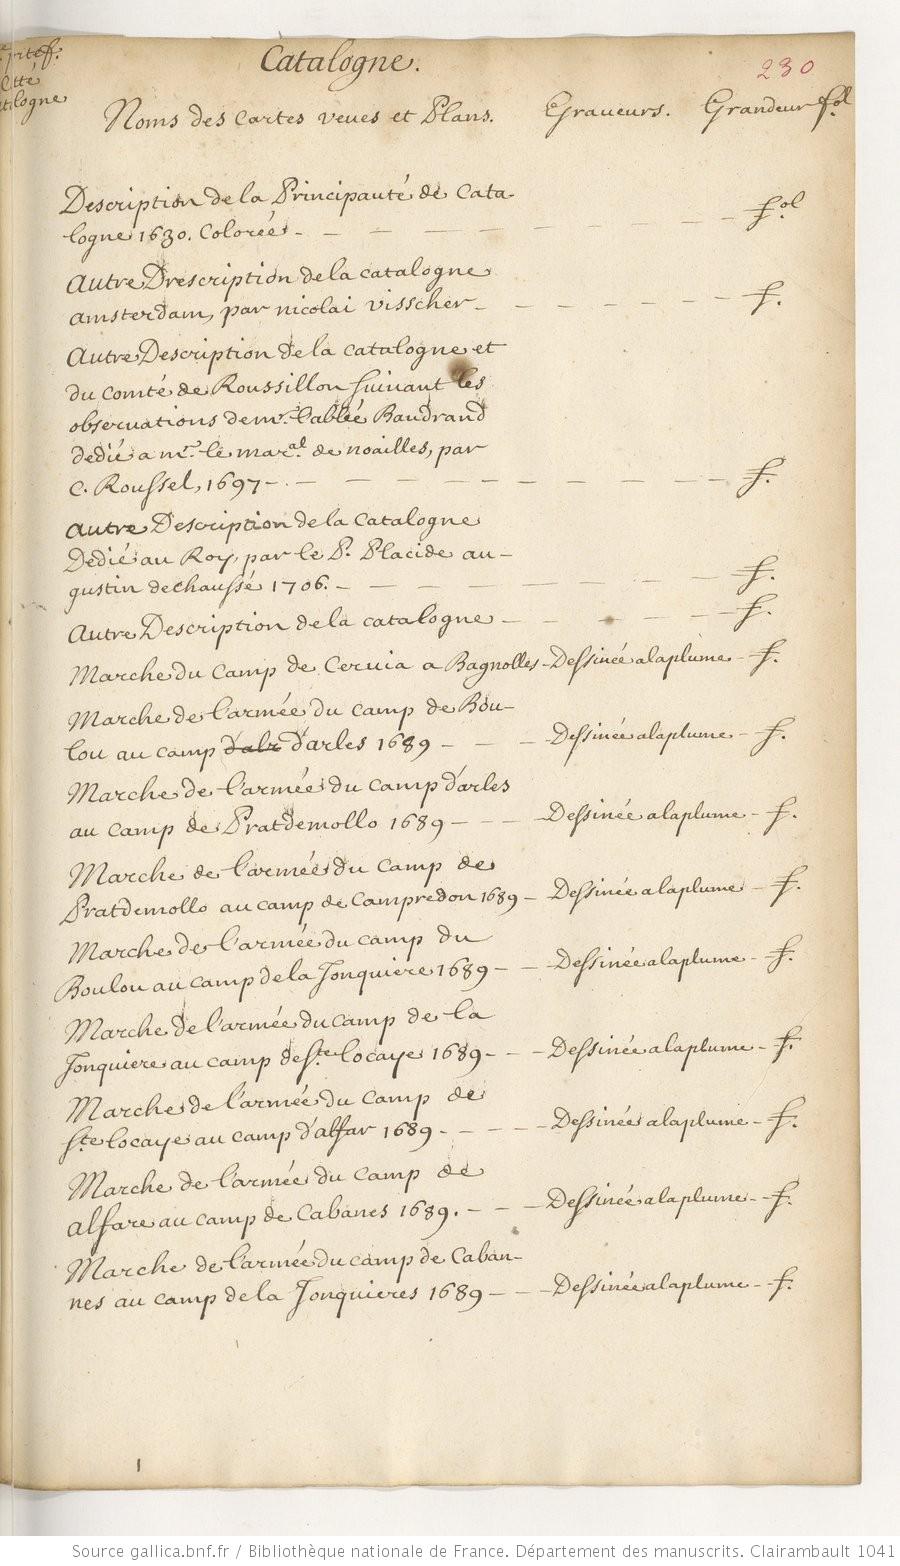 Catalogne.
230
Noms des Cartes veues et Plans. Graveurs. Grandeur fol.
Description de la Principauté de Cata-
logne 1630. Colorée - - - - - - - fol.
Autre Drescription de la Catalogne
amsterdam, par nicolai visscher - - - - - - f.
Autre Description de la Catalogne et
du Comté de Roussillon suivant les
observations de mr. l'abbé Baudrand
dedié a mr. le maral. de noailles, par
C. Roussel, 1697 - - - - - - - - f.
autre Description de la Catalogne
Dedié au Roy, par le P. Placide au-
gustin dechaussé 1706. - - - - - - - f.
Autre Description de la Catalogne - - - - f.
Marche du Camp de Cervia a Bagnolles - Dessinée a la plume - f.
Marche de l'armée du camp de Bou-
lou au camp d'alr d'arles 1689 - - - Dessinée a la plume - f.
Marche de l'armée du camp d'arles
au camp de Pratdemollo 1689 - - - Dessinée a la plume - f.
Marche de l'armée du camp de
Pratdemollo au camp de Campredon 1689 - Dessinée a la plume - f.
Marche de l'armée du camp du
Boulou au camp de la Jonquiere 1689 - - Dessinée a la plume - f.
Marche de l'armée du camp de la
Jonquiere au camp de Ste. locaye 1689 - - Dessinée a la plume - f.
Marche de l'armée du camp de
Ste locaye au camp d'alfar 1689 - - - - Dessinée a la plume - f.
Marche de l'armée du camp de
alfare au camp de Cabanes 1689. - - - Dessinée a la plume - - f.
Marche de l'armée du camp de Caban-
nes au camp de la Jonquieres 1689 - - - Dessinée a la plume - f.
Source gallica.bnf.fr / Bibliothèque nationale de France. Département des manuscrits. Clairambault 1041